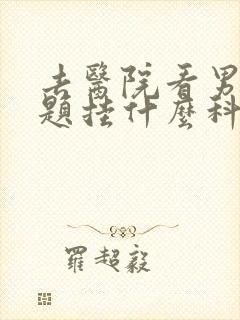 去醫院看男
題挂什麼科
羅超毅